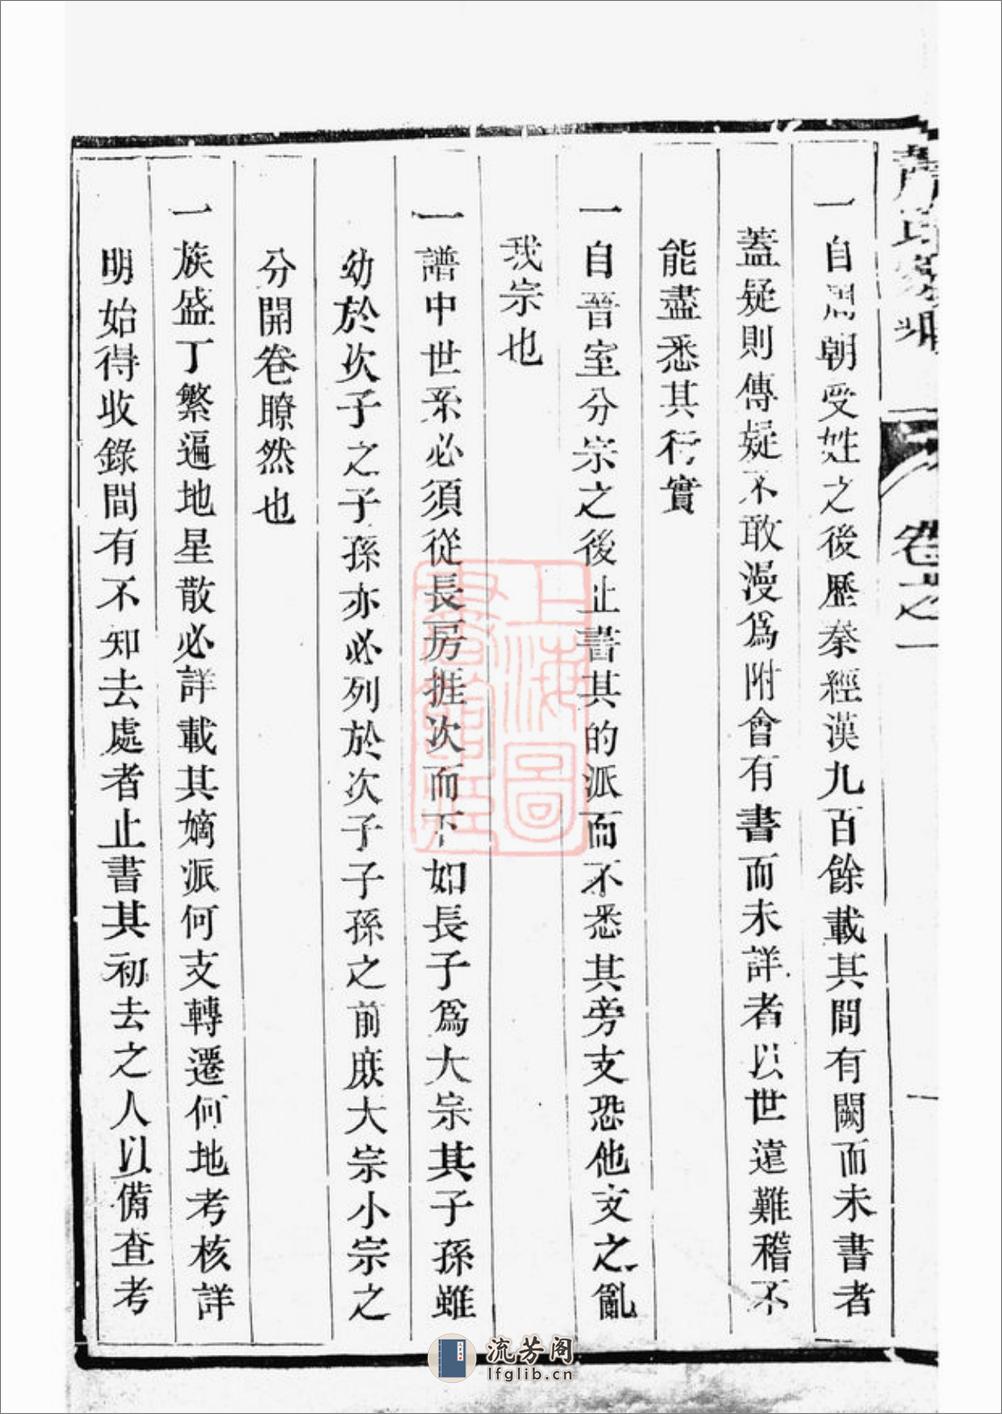 卷之一
一
一自周朝受姓之後歷秦經漢九百餘載其間有闕而未書者
蓋疑則傳疑不敢漫爲附會有書而未詳者以世遠難稽不
能盡悉其行實
一自晉室分宗之後止書其的派而不悉其旁支恐他支之亂
我宗也
一譜中世系必須從長房挨次而下如長子爲大宗其子孫雖
幼於次子之子孫亦必列於次子子孫之前庶大宗小宗之
分開卷瞭然也
一族盛丁繁遍地星散必詳載其嫡派何支轉遷何地考核詳
明始得收錄間有不知去處者止書其初去之人以備查考
上海圖
書館藏
流芳阁
lfglib.cn